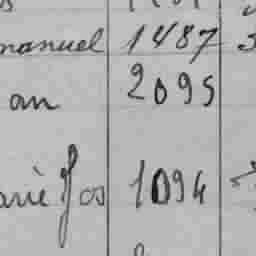 manuel 1487
an 2095
arié Jos 1094